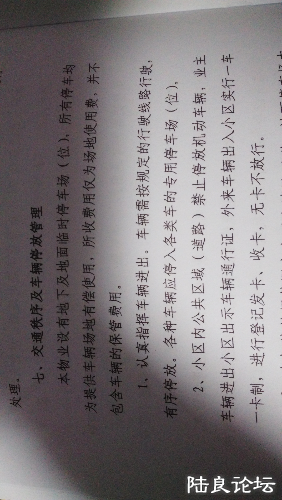 处理。
七、交通秩序及车辆停放管理
本物业设有地下及地面临时停车场（位），所有停车均
为提供车辆场地有偿使用，所收费用仅为场地使用费，并不
包含车辆的保管费用。
1、认真指挥车辆进出。车辆需按规定的行驶线路行驶，
有序停放。各种车辆应停入各类车的专用停车场（位）。
2、小区内公共区域（道路）禁止停放机动车辆，业主
车辆进出小区出示车辆通行证，外来车辆出入小区实行一车
一卡制，进行登记发卡、收卡，无卡不放行。
陆良论坛